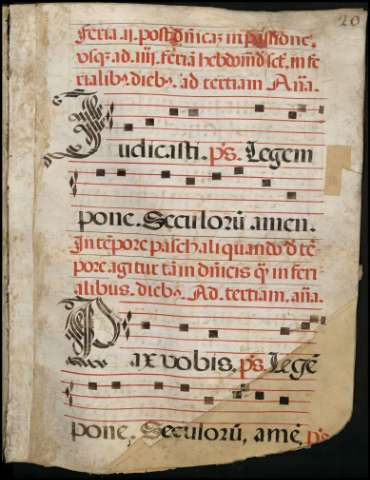 20
feria .ij. post dm̄cā in passione,
vsqz ad .iiij. feriā hebdom̄. sctē. in fe
rialibꝰ. diebꝰ. ad tertiam Aña.
Judicasti. ps. Legem
pone. Seculorū amen.
In tēpore paschali quando d tē
pore agitur tā in dm̄icis qꝫ in feri
alibus. diebꝰ. Ad. tertiam. aña.
Pax vobis. ps. Legē
pone. Seculorū, amē, ps